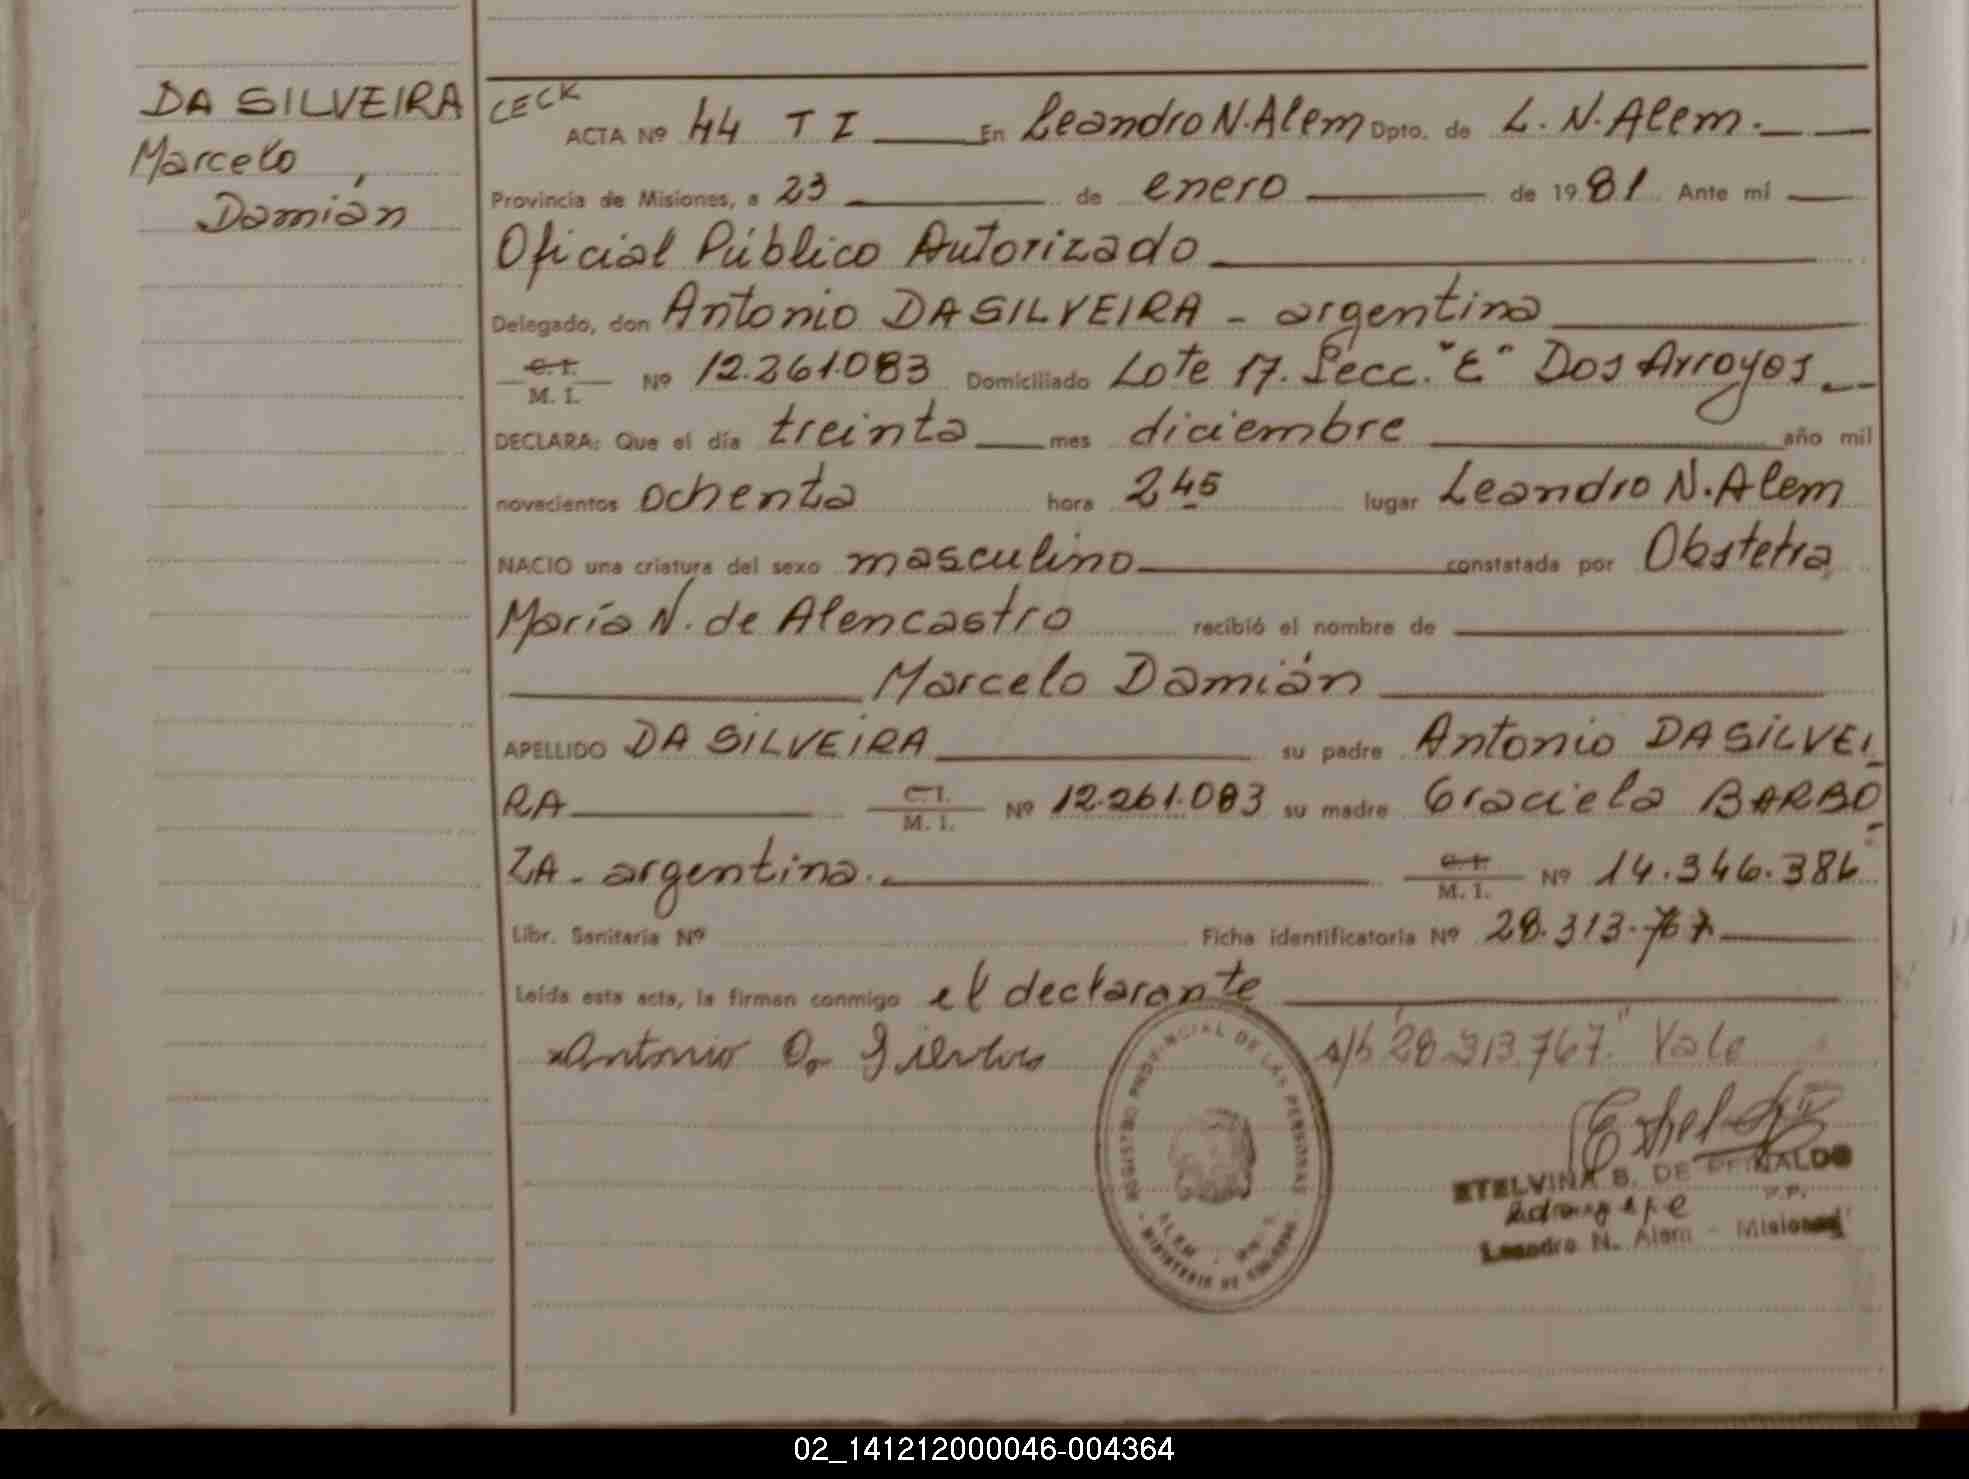 DA SILVEIRA
Marcelo
Damián
CECK
ACTA Nº 44 T I En Leandro N. Alem Dpto. de L. N. Alem.
Provincia de Misiones, a 23 de enero de 1981 Ante mí
Oficial Público Autorizado
Delegado, don Antonio DA SILVEIRA - argentina
C.I.
M. I. Nº 12.261.083 Domiciliado Lote 17. Secc. "E" Dos Arroyos
DECLARA: Que el día treinta mes diciembre año mil
novecientos ochenta hora 2 45 lugar Leandro N. Alem
NACIO una criatura del sexo masculino constatada por Obstetra
María N. de Alencastro recibió el nombre de
Marcelo Damián
APELLIDO DA SILVEIRA su padre Antonio DA SILVEI
RA C.I. M. I. Nº 12.261.083 su madre Graciela BARBO
ZA - argentina. C.I. M. I. Nº 14.346.386
Libr. Sanitaria Nº Ficha identificatoria Nº 28.313.767
Leída esta acta, la firman conmigo el declarante
Antonio Da
s/b "28.313.767" Vale
REGISTRO PROVINCIAL DE LAS PERSONAS
ALEM - MNES.
MINISTERIO DE GOBIERNO
ETELVINA B. DE REINALDO
Leandro N. Alem - Misiones
02_141212000046-004364